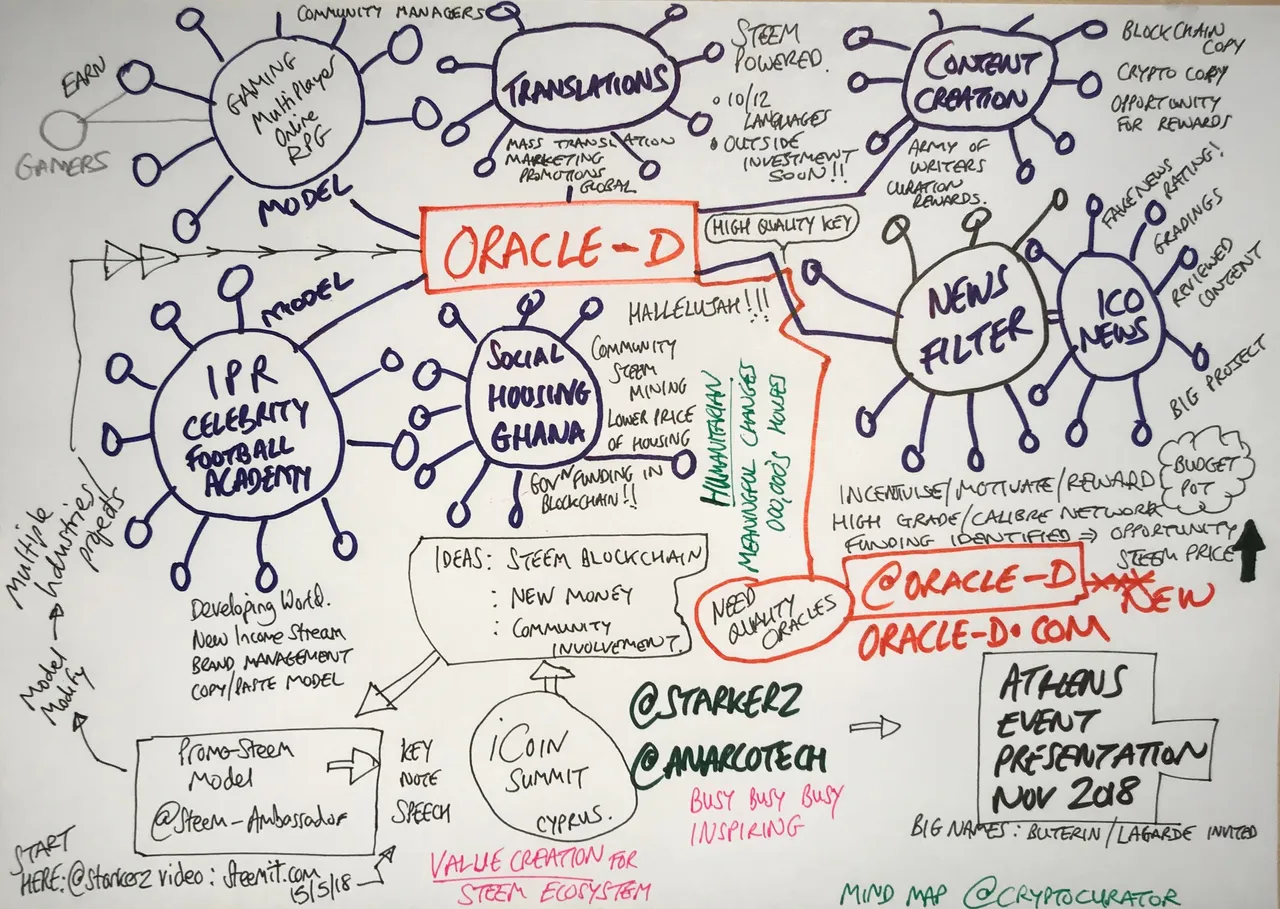 COMMUNITY MANAGERS
EARN
GAMERS
GAMING
MultiPlayer
Online
RPG
MODEL
TRANSLATIONS
MASS TRANSLATION
MARKETING
PROMOTIONS
GLOBAL
STEEM
POWERED.
• 10/12
LANGUAGES
• OUTSIDE
INVESTMENT
SOON!!
CONTENT
CREATION
ARMY OF
WRITERS
CURATION
REWARDS.
BLOCKCHAIN
COPY
CRYPTO COPY
OPPORTUNITY
FOR REWARDS
ORACLE-D
HIGH QUALITY KEY
HALLELUJAH!!!
NEWS
FILTER
=
ICO
NEWS
FAKENEWS
RATING!
GRADINGS
REVIEWED
CONTENT
BIG PROJECT
MODEL
IPR
CELEBRITY
FOOTBALL
ACADEMY
Developing World.
New Income Stream
BRAND MANAGEMENT
COPY/PASTE MODEL
SOCIAL
HOUSING
GHANA
COMMUNITY
STEEM
MINING
LOWER PRICE
OF HOUSING
GOVN FUNDING IN
BLOCKCHAIN!!
HUMANITARIAN
MEANINGFUL CHANGES
000,000's HOUSES
BUDGET
POT
INCENTIVISE/MOTIVATE/REWARD
HIGH GRADE/CALIBRE NETWORK
FUNDING IDENTIFIED ⇒ OPPORTUNITY
STEEM PRICE
NEED
QUALITY
ORACLES
@ORACLE-D
NEW
ORACLE-D.COM
IDEAS: STEEM BLOCKCHAIN
: NEW MONEY
: COMMUNITY
INVOLVEMENT.
Multiple
Industries/
projects
Model
Modify
Promo-Steem
Model
@Steem-Ambassador
KEY
NOTE
SPEECH
iCOIN
SUMMIT
CYPRUS.
@STARKERZ
@ANARCOTECH
BUSY BUSY BUSY
INSPIRING
ATHENS
EVENT
PRESENTATION
NOV 2018
BIG NAMES: BUTERIN/LAGARDE INVITED
START
HERE: @starkerz video: steemit.com
15/5/18
VALUE CREATION FOR
STEEM ECOSYSTEM
MIND MAP @CRYPTOCURATOR